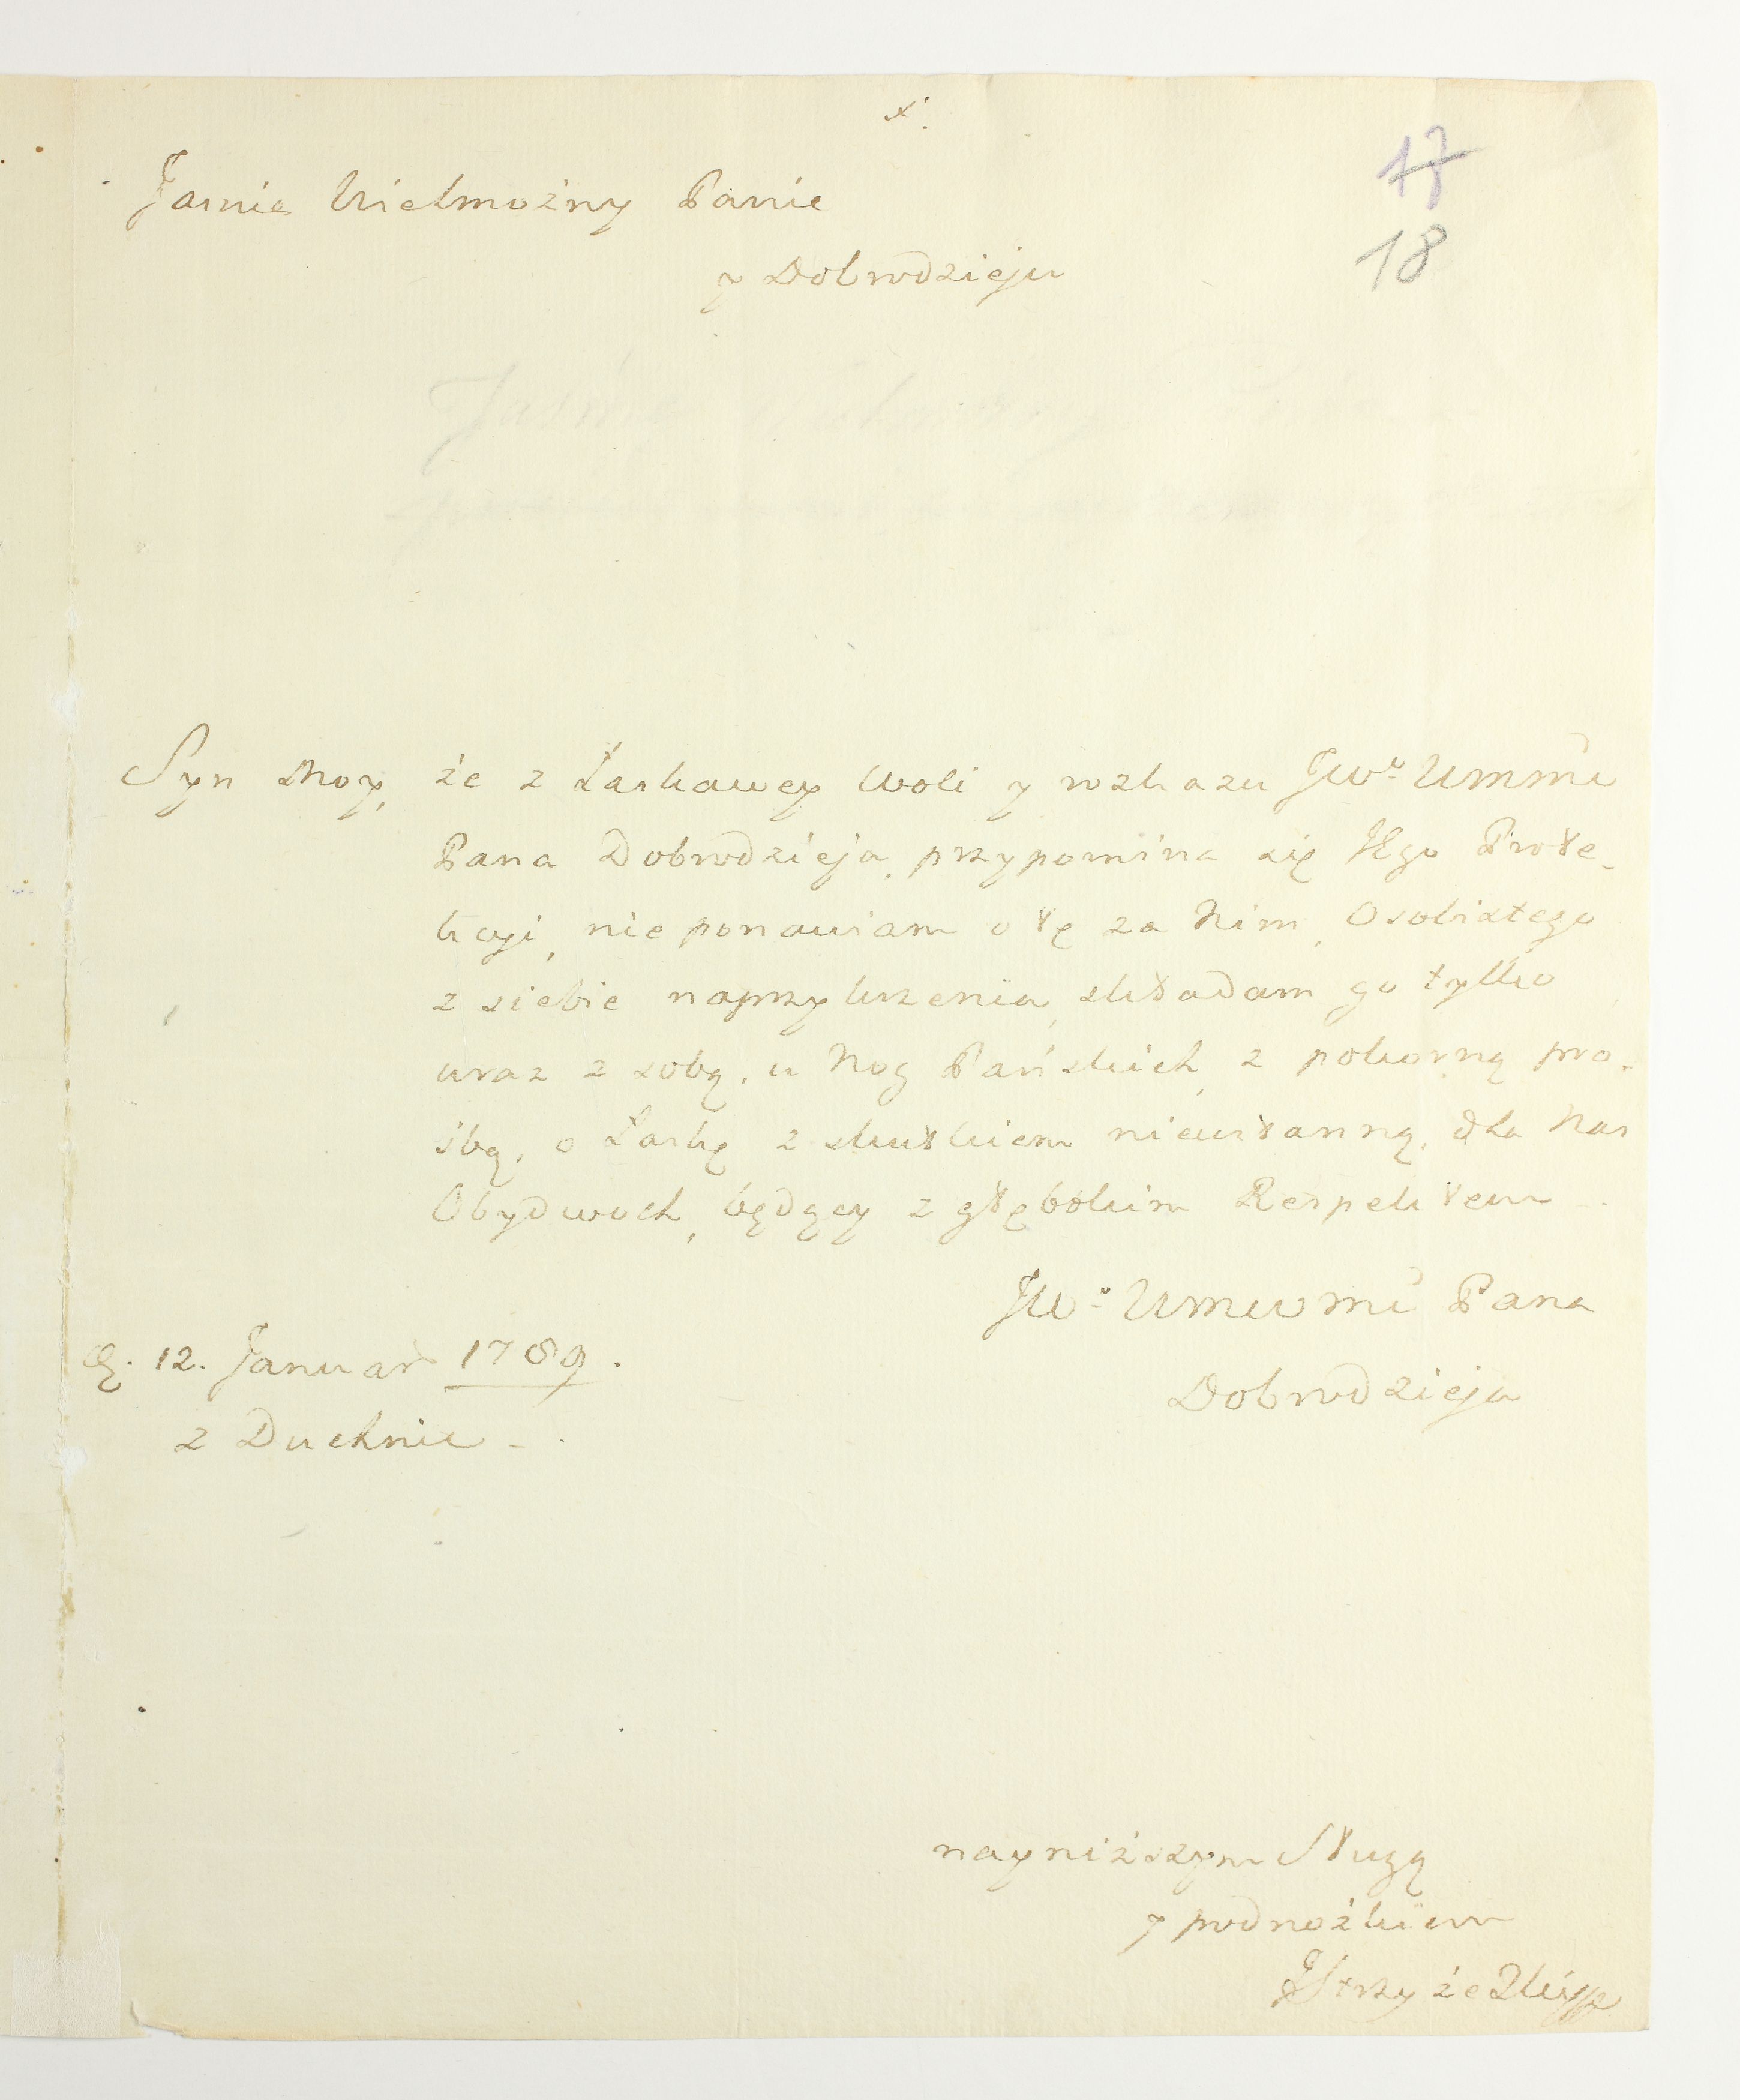 17
18
Jasnie Wielmożny Panie
y Dobrodzieju
Syn Moy, że z Łaskawey Woli y rozkazu JWo Ummi
Pana Dobrodzieja, przypomina się JEgo Prote-
kcyi, nie ponawiam o tę za Nim, Osobistego
z siebie naprzykrzenia, składam go tylko
wraz z sobą, u Nog Pańskich, z pokorną pro-
śbą, o Łaskę z skutkiem nieustanną, dla Nas
Obydwoch, będący z głębokim Respektem
JWo Umwmi Pana
Dobrodzieja
d. 12. Januar 1789.
z Duchnic
nayniższym Sługą
y podnożkiem